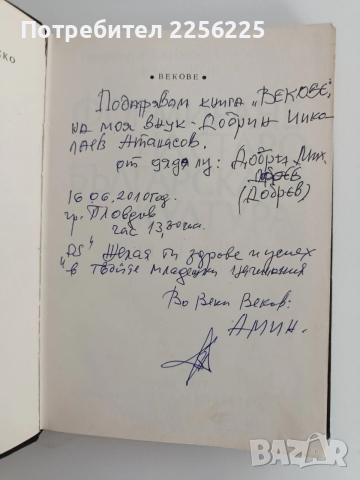 Позвънете на 0882256205
ско
• ВЕКОВЕ •
Подарявам книга „ВЕКОВЕ“,
на моя внук - Добрин Нико
лаев Атанасов.
от дядо му: Добри Мих.
(Добрев)
16.06.2010 год.
гр. Пловдив
час 13,30 ч.
"PS" Желая ти здраве и успех
в твоите младежки начинания
Во веки Веков:
АМИН.
BAZAR